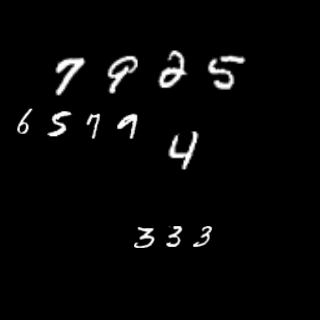 7925
6579
4
333